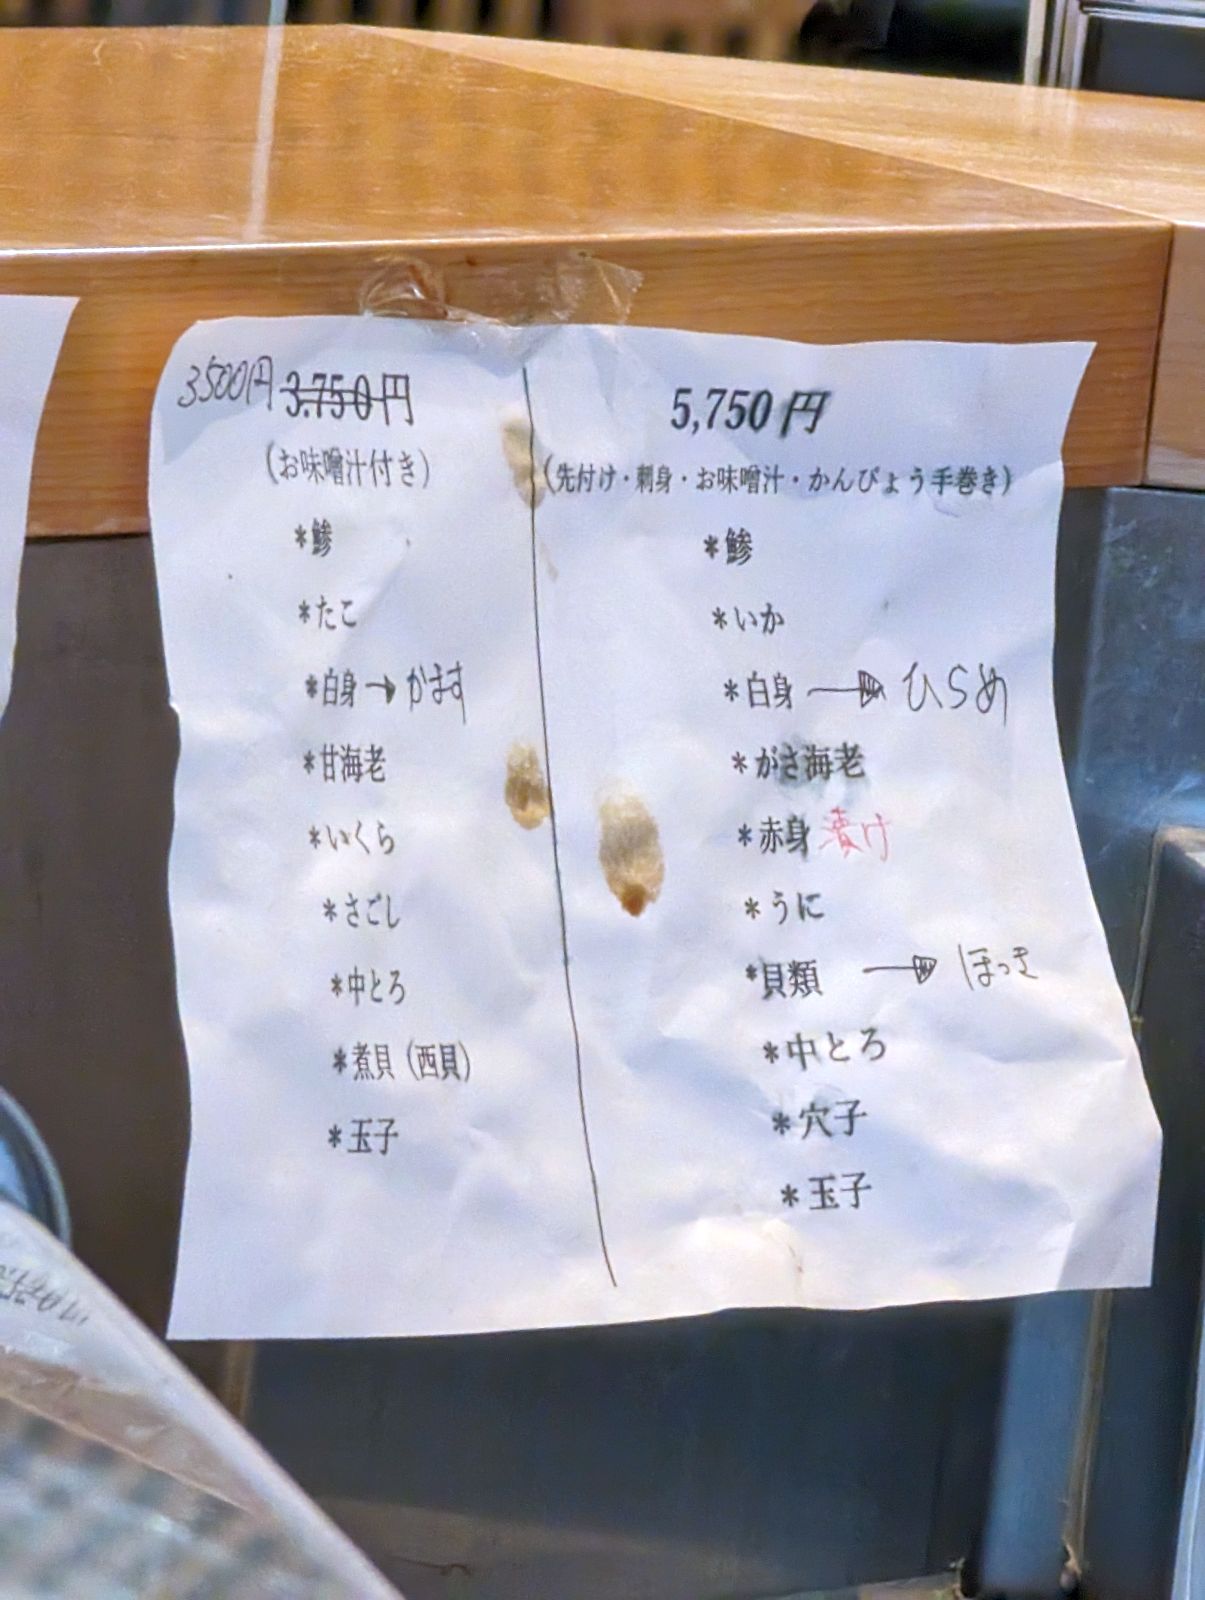 3500円 3.750円
(お味噌汁付き)
*鯵
*たこ
*白身→かます
*甘海老
*いくら
*さごし
*中とろ
*煮貝(西貝)
*玉子
5,750円
(先付け・刺身・お味噌汁・かんぴょう手巻き)
*鯵
*いか
*白身→ひらめ
*がさ海老
*赤身 漬け
*うに
*貝類→ほっき
*中とろ
*穴子
*玉子